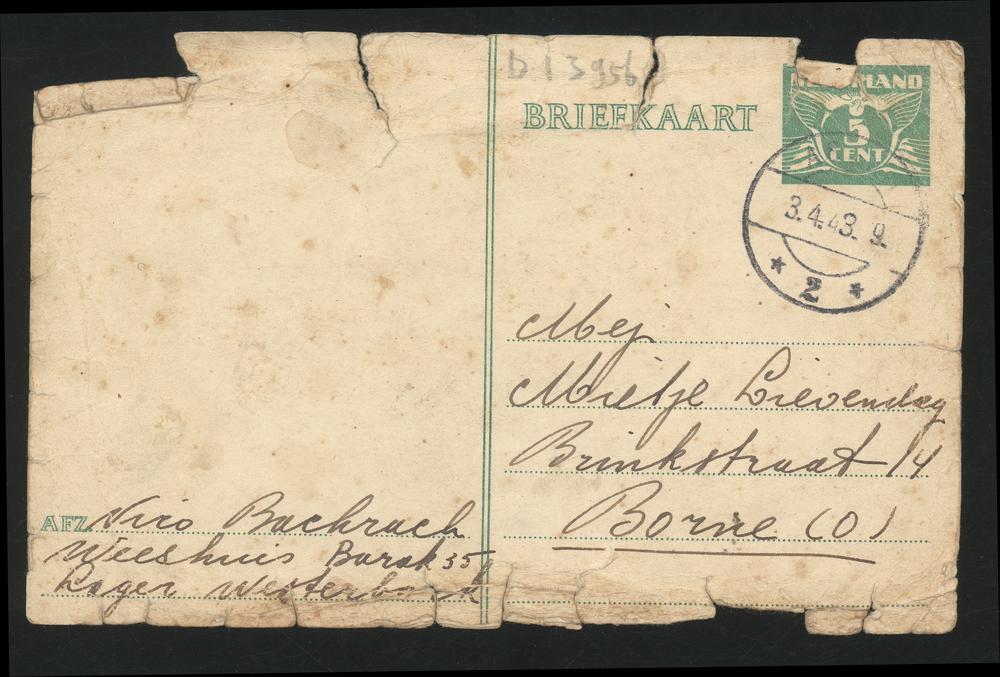 D 13956
BRIEFKAART
NEDERLAND
5
CENT
3.4.43. 9.
2
Mej.
Mietje Lievendag
Brinkstraat 14
Borne (O)
AFZ. Nico Bachrach
Weeshuis Barak 35
Lager Westerbork